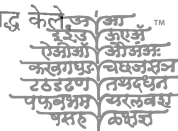 द्ध केले अ आ TM
इईउ ऊए
ऐ औअंअः
कखगघङ चछजझञ
टठडढण तथदधन
पफबभम यरलवश
षसह ळक्षज्ञ